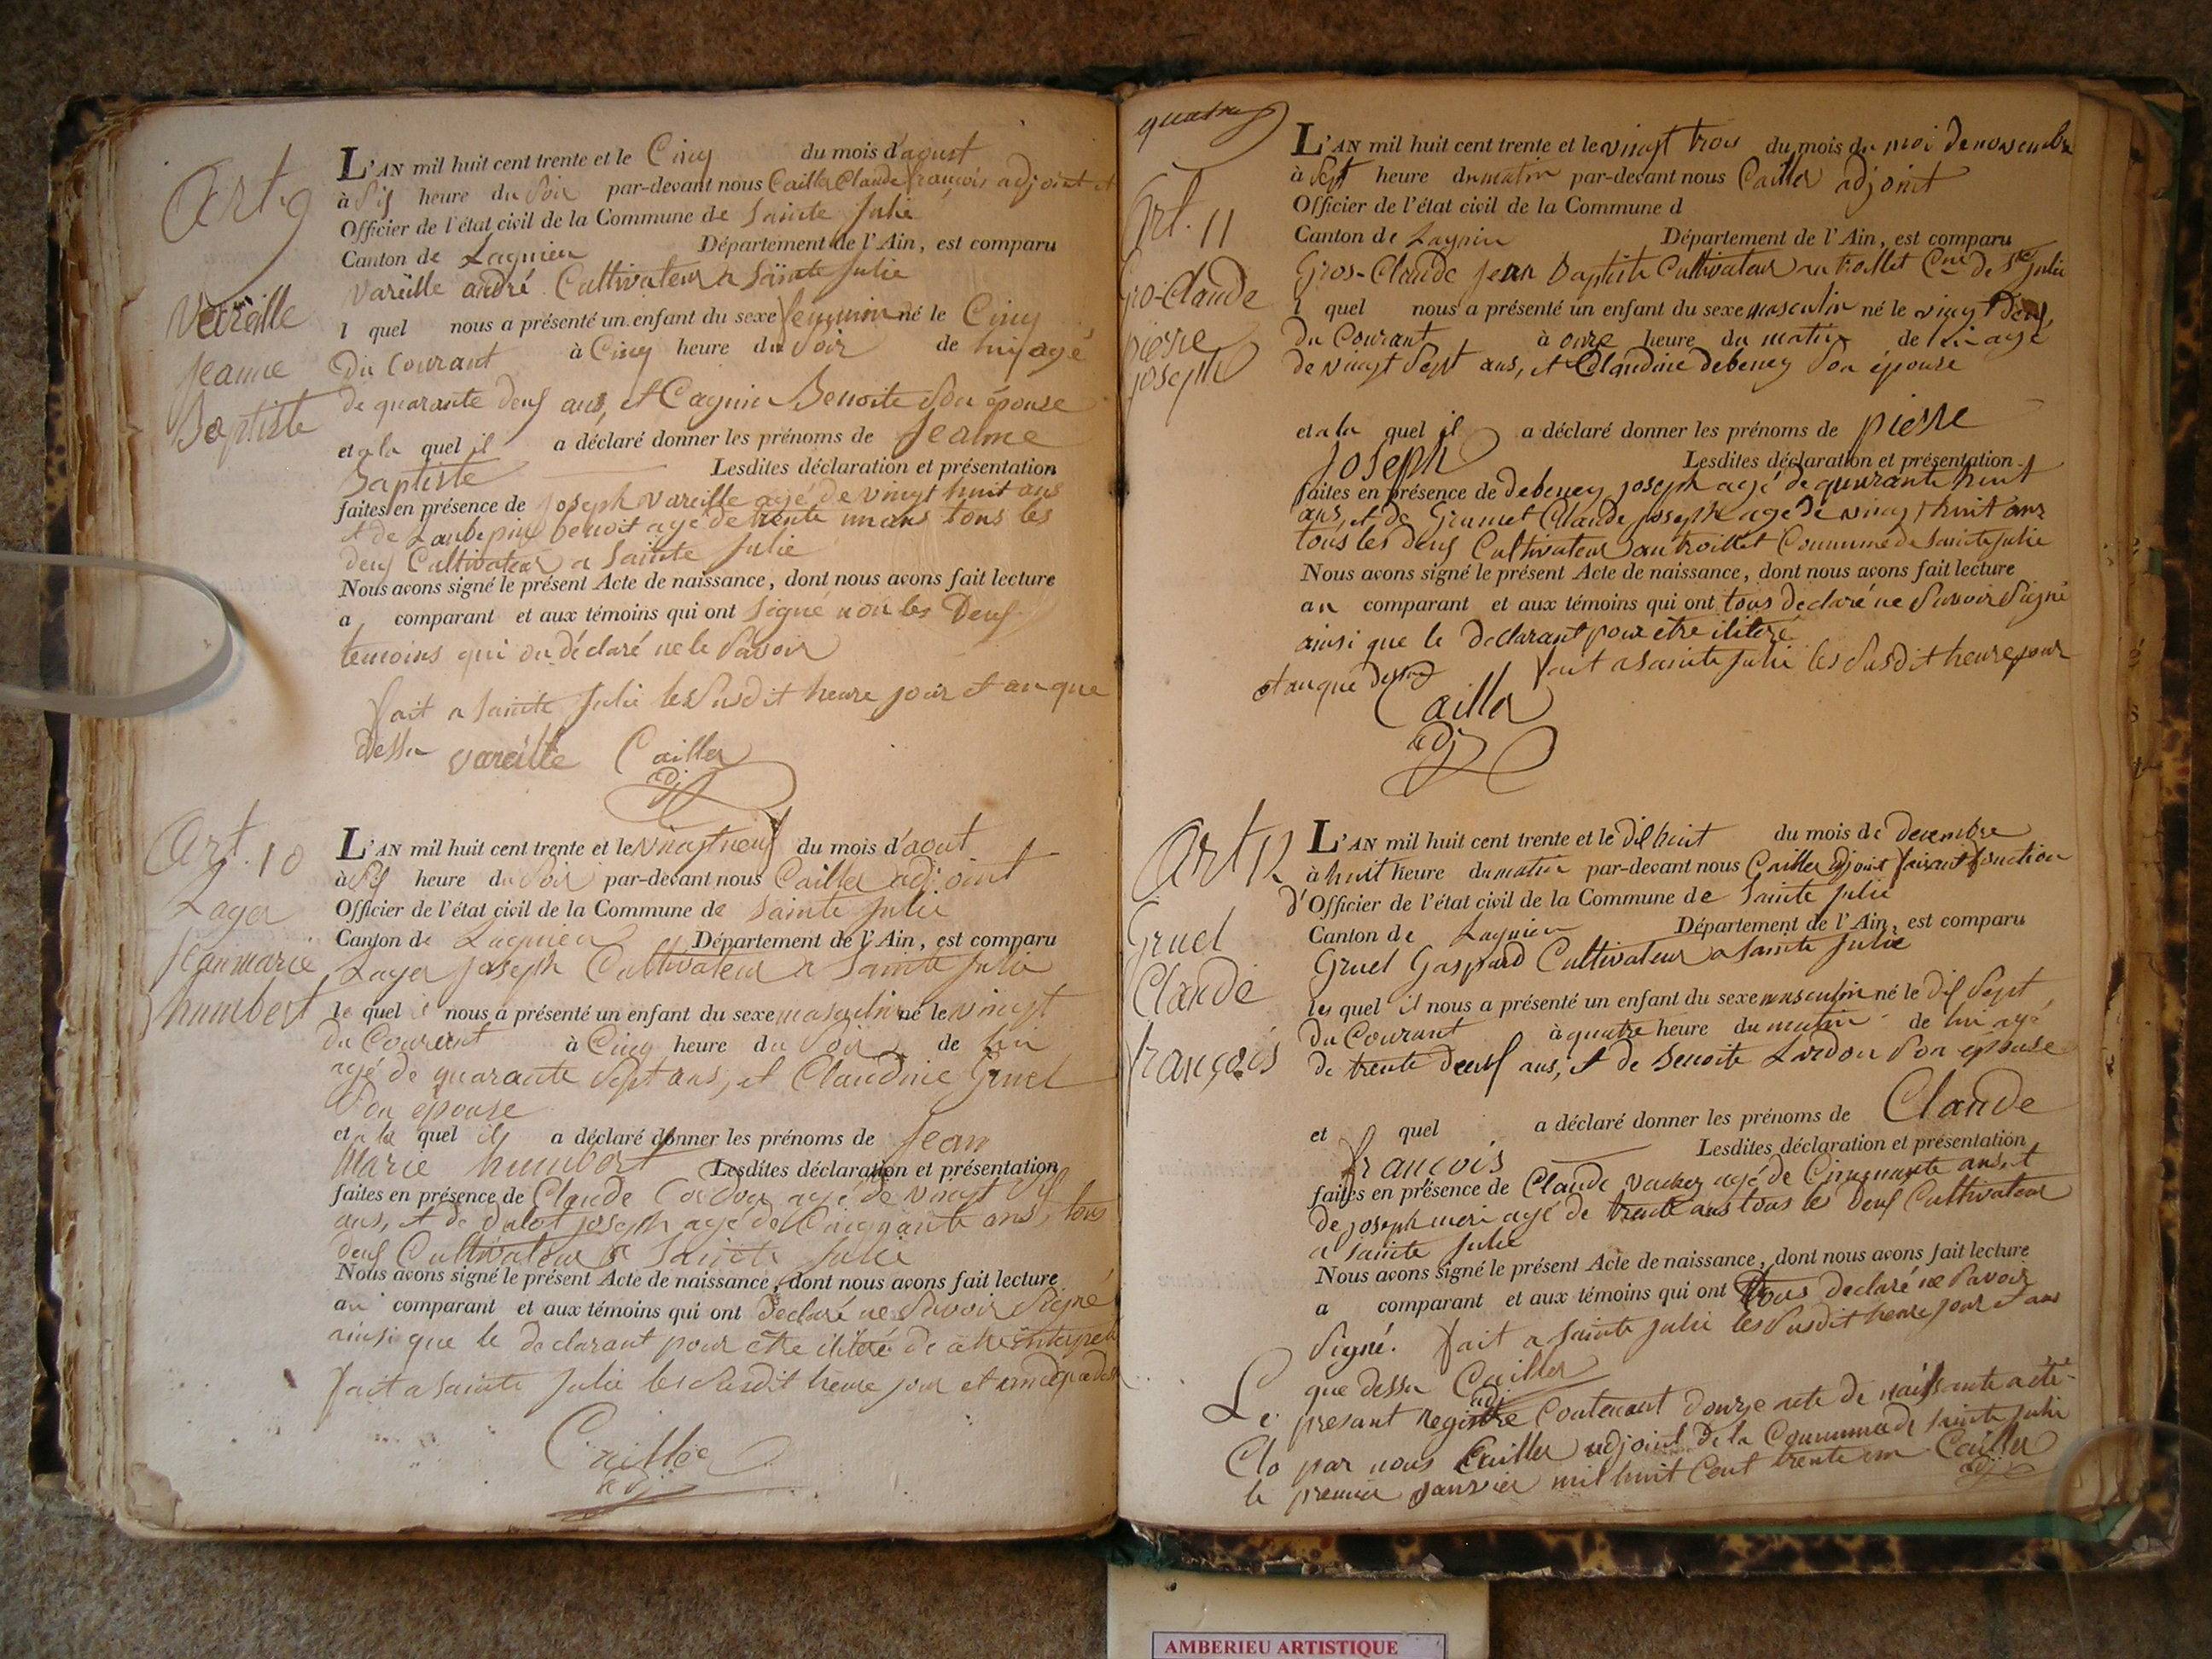 Art. 9
Vareille
Jeanne
Baptiste
L'AN mil huit cent trente et le Cinq du mois d'aoust
à Sis heure du Soir par-devant nous Cailler Claude françois adjoint et
Officier de l'état civil de la Commune de Sainte Julie
Canton de Lagnieu Département de l'Ain, est comparu
Vareille andré Cultivateur a Sainte Julie
l quel nous a présenté un enfant du sexe feminin né le Cinq
du Courant à Cinq heure du Soir de lui agé
de quarante deus ans, et Cagnin Benoite Son épouse
et a la quel il a déclaré donner les prénoms de Jeanne
Baptiste Lesdites déclaration et présentation
faites en présence de joseph Vareille agé de vingt huit ans
et de Laubepin benoit agé de trente un ans tous les
deus Cultivateur a Sainte Julie
Nous avons signé le présent Acte de naissance, dont nous avons fait lecture
a comparant et aux témoins qui ont Signé non les Deus
temoins qui on déclaré ne le Savoir
fait a Sainte Julie les Susdit heure jour et an que
dessu Vareille Cailler
adj
Art. 10
Layer
Jean marie
humbert
L'AN mil huit cent trente et le Vingt neuf du mois d'aout
à Sis heure du Soir par-devant nous Cailler adjoint
Officier de l'état civil de la Commune de Sainte Julie
Canton de Lagnieu Département de l'Ain, est comparu
Layer joseph Cultivateur a Sainte Julie
le quel nous a présenté un enfant du sexe masculin né le vingt
du Courant à Cinq heure du Soir de lui
agé de quarante Sept ans, et Claudine Gruel
Son épouse
et a la quel il a déclaré donner les prénoms de Jean
Marie humbert Lesdites déclaration et présentation
faites en présence de Claude agé de vingt Sis
ans, et de joseph agé de Cinquante ans, tous
deus Cultivateur a Sainte Julie
Nous avons signé le présent Acte de naissance, dont nous avons fait lecture
au comparant et aux témoins qui ont declaré ne Savoir Signé
ainsi que le declarant pour etre iliteré de
fait a Sainte Julie les Susdit heure jour et an
Cailler
adj
quatre
Art. 11
gro-Claude
pierre
joseph
L'AN mil huit cent trente et le vingt trois du mois du moi de novembre
à Sept heure du matin par-devant nous Cailler adjoint
Officier de l'état civil de la Commune d
Canton de Lagnieu Département de l'Ain, est comparu
Gros-Claude Jean baptiste Cultivateur au trollet Cne de Ste Julie
l quel nous a présenté un enfant du sexe masculin né le vingt deus
du Courant à onze heure du matin de lui agé
de vingt Sept ans, et Claudine debeney Son épouse
et a la quel il a déclaré donner les prénoms de pierre
Joseph Lesdites déclaration et présentation
faites en présence de debeney joseph agé de quarante huit
ans, et de Grumet Claude joseph agé de vingt huit ans
tous les deus Cultivateur au trollet Commune de Sainte Julie
Nous avons signé le présent Acte de naissance, dont nous avons fait lecture
au comparant et aux témoins qui ont tous declaré ne Savoir Signé
ainsi que le declarant pour etre iliteré
fait a Sainte Julie les Susdit heure jour
et an que dessu
Cailler
adj
Art 12
Gruel
Claude
françois
L'AN mil huit cent trente et le dis huit du mois de decembre
à huit heure du matin par-devant nous Cailler adjoint faisant fonction
d'Officier de l'état civil de la Commune de Sainte Julie
Canton de Lagnieu Département de l'Ain, est comparu
Gruel Gaspard Cultivateur a Sainte Julie
les quel il nous a présenté un enfant du sexe masculin né le dis Sept
du Courant à quatre heure du matin de lui agé
de trente deus ans, et de Benoite Lardon Son epouse
et quel a déclaré donner les prénoms de Claude
françois Lesdites déclaration et présentation
faites en présence de Claude agé de Cinquante ans, et
de joseph meri agé de trente ans tous les deus Cultivateur
a Sainte Julie
Nous avons signé le présent Acte de naissance, dont nous avons fait lecture
a comparant et aux témoins qui ont tous declaré ne Savoir
Signé. fait a Sainte Julie les Susdit heure jour et an
que dessu Cailler
adj
Le presant registre Contenant douze acte de naissante a été
Clo par nous Cailler adjoint de la Commune de Sainte Julie
le premier janvier mil huit Cent trente un Cailler
adj
AMBERIEU ARTISTIQUE